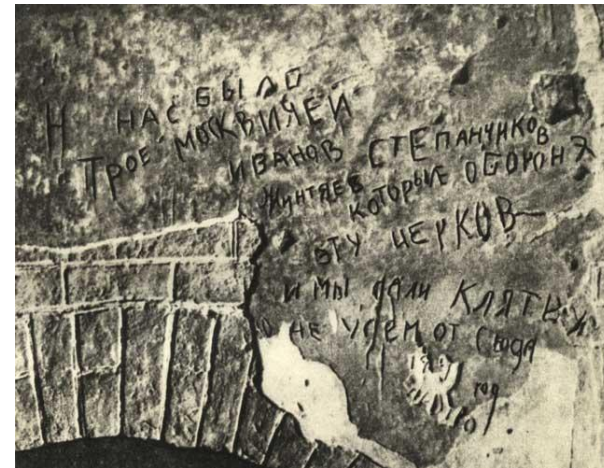 Н НАС БЫЛО
ТРОЕ МОСКВИЧЕЙ
ИВАНОВ СТЕПАНЧИКОВ
ЖИНТЯЕВ
КОТОРЫЕ ОБОРОНЯ
ЭТУ ЦЕРКОВ
И МЫ ДАЛИ КЛЯТВУ
НЕ УЙДЕМ ОТ СЮДА
год